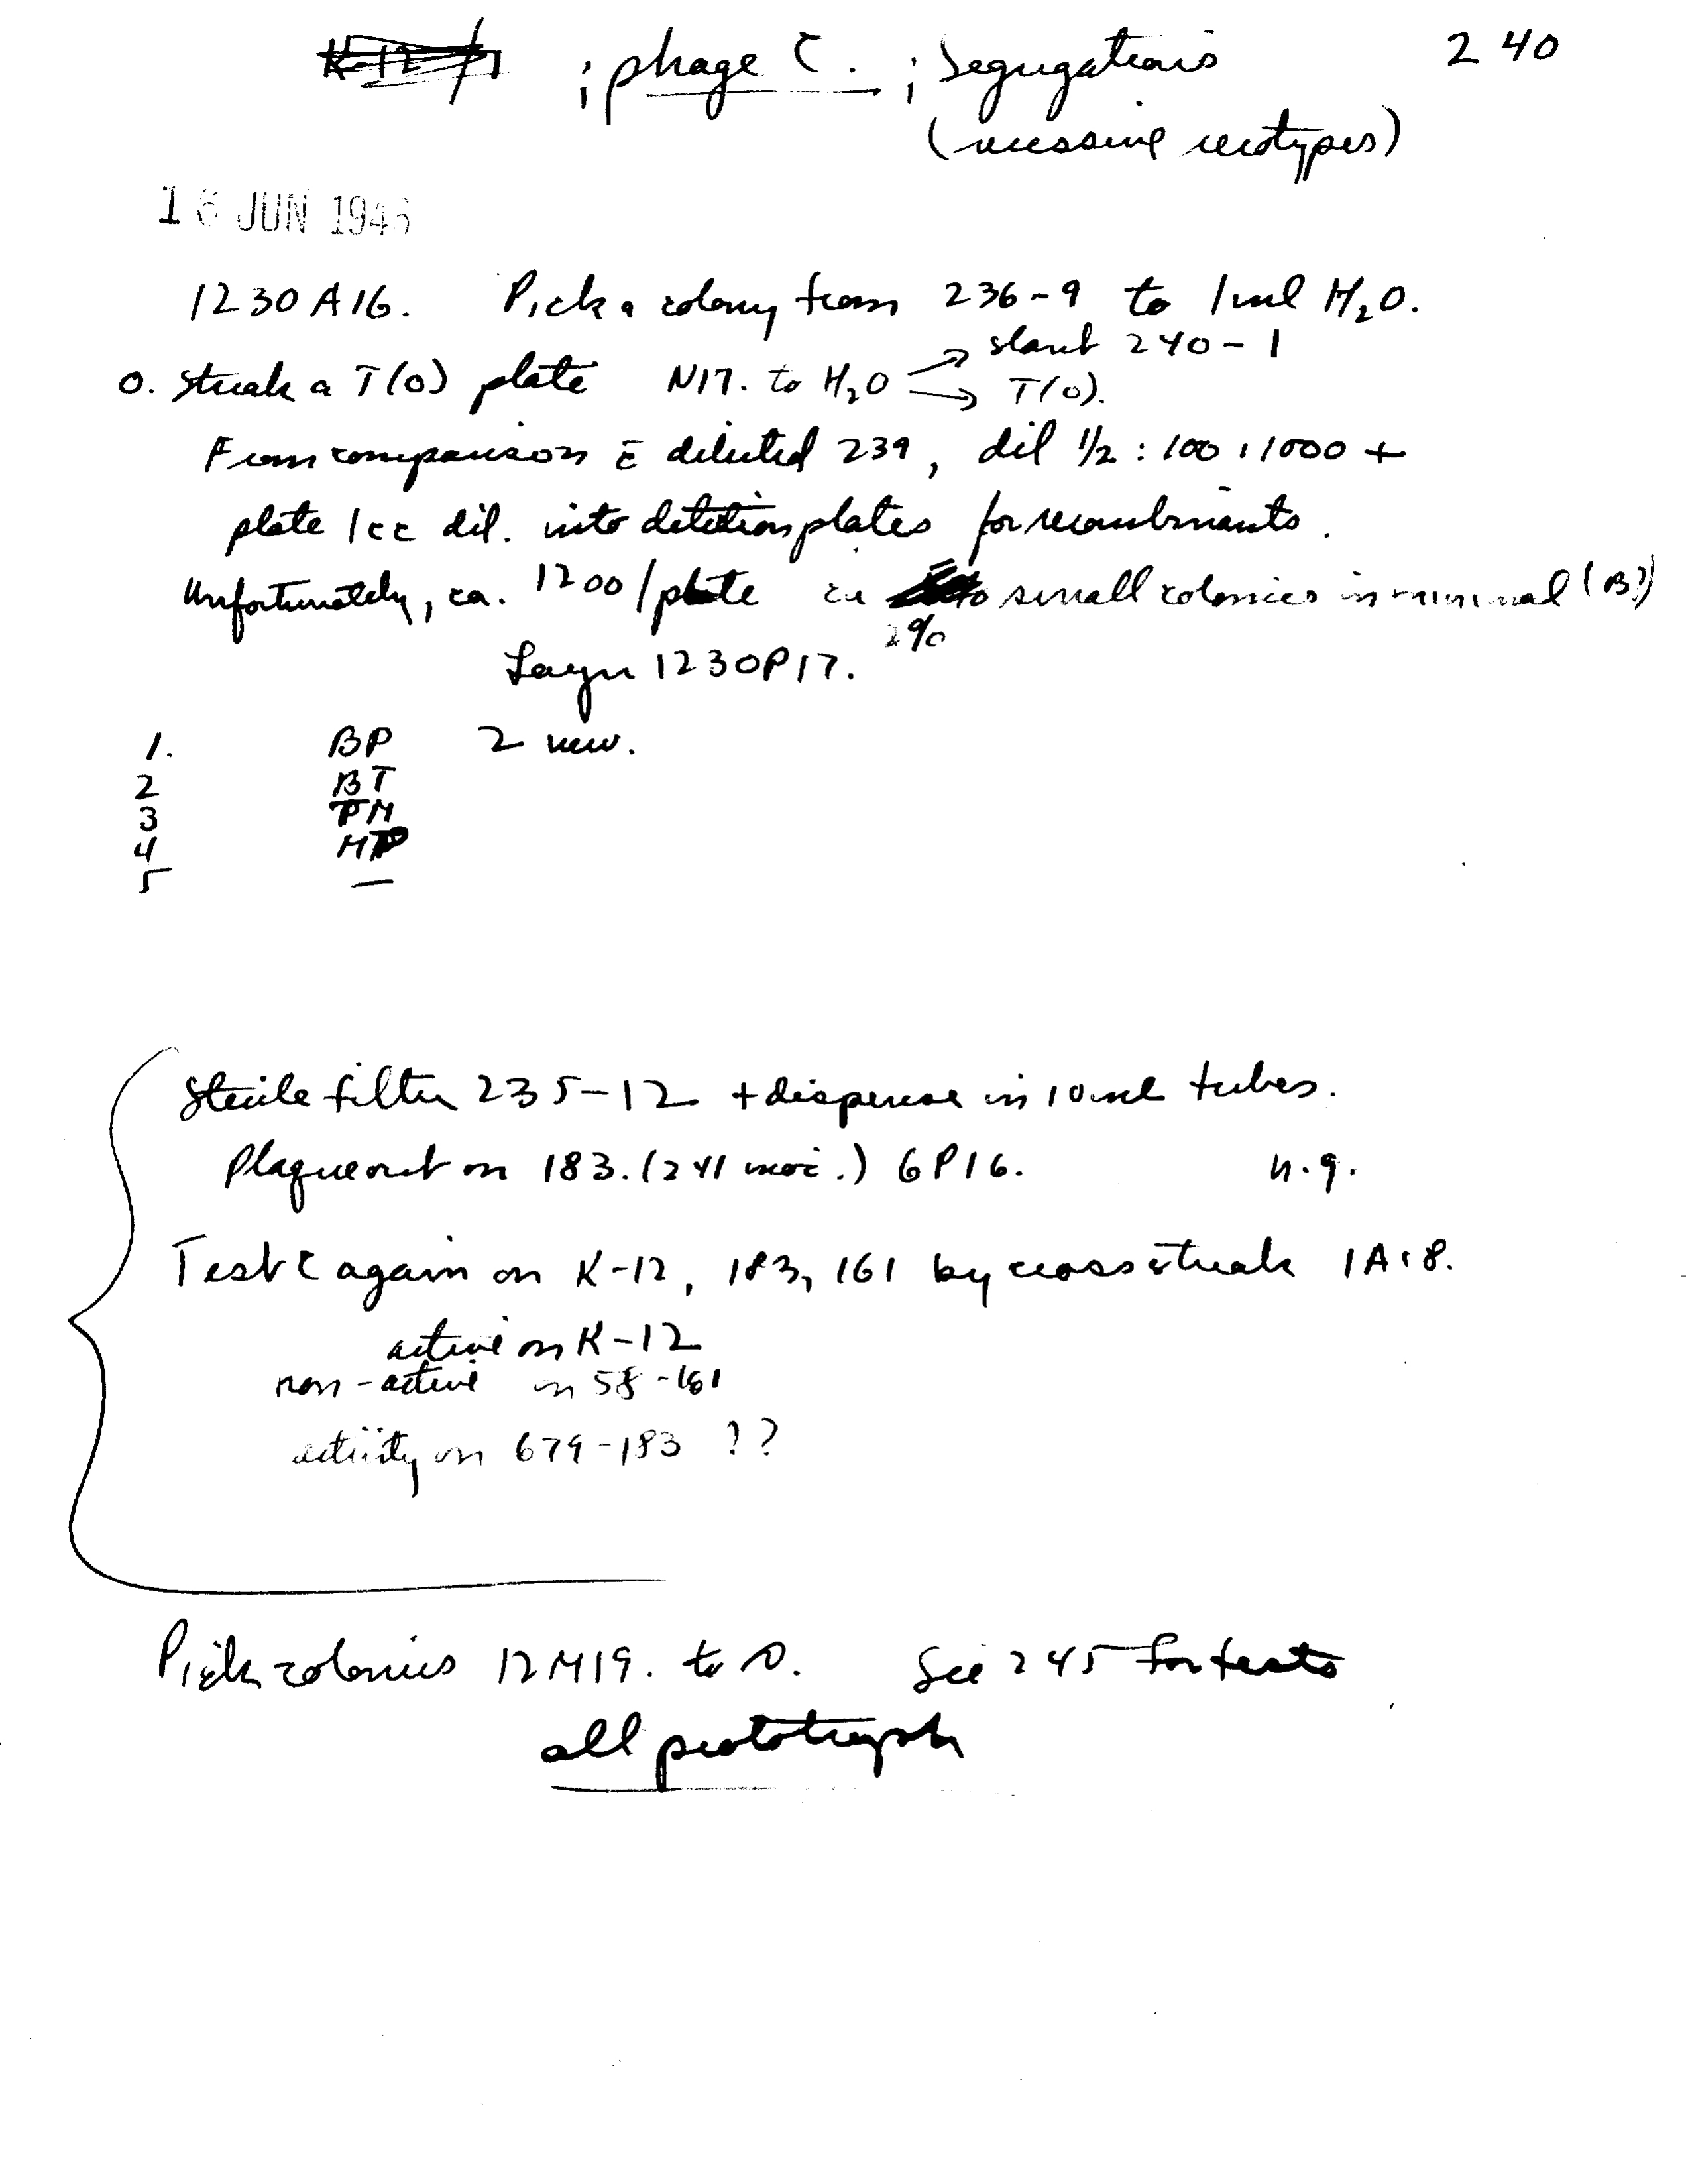 ; phage C. ; Segregations 240
(excessive ecotypes)
16 JUN 1946
1230 A16. Pick a colony from 236-9 to 1 ml H₂O.
o. Streak a T(0) plate N17. to H₂O → slant 240-1
→ T(0).
From comparison c̄ diluted 239, dil 1/2 : 100 : 1000 +
plate 1cc dil. into detection plates for recombinants.
Unfortunately, ca. 1200/plate small colonies in minimal (B?)
2%
Layer 1230P17.
1. BP 2 new.
2 BT
3 PM
4 MT
5 —
Sterile filter 235-12 + dispense in 10 ml tubes.
Plaque out on 183. (241 moi.) 6P16. n.g.
Test C again on K-12, 183, 161 by cross streak 1A18.
active on K-12
non-active on 58-161
activity on 679-183 ??
Pick colonies 12M19. to D. See 245 for tests
all prototroph